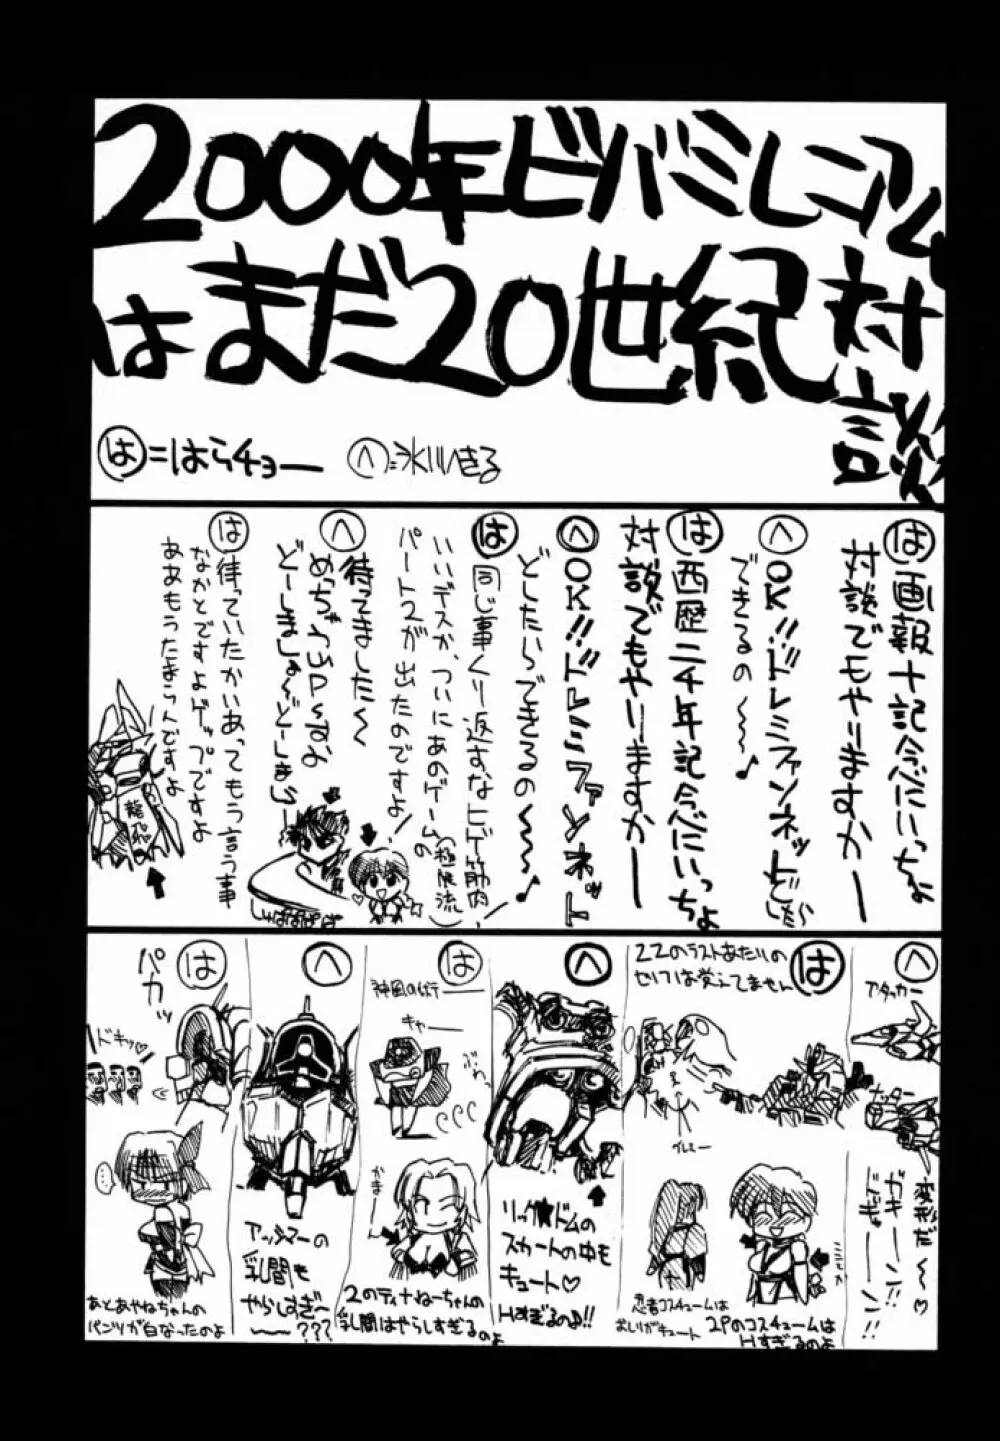 2000年ビバミレニアム
はまだ20世紀対談
は=はらチョー
へ=氷川へきる
は 画報十記念にいっちょ
対談でもやりますかー
へ OK!!ドレミファンネットどしたら
できるの〜〜♪
は 西歴二千年記念にいっちょ
対談でもやりますかー
へ OK!!ドレミファンネット
どしたらできるの〜〜♪
は 同じ事くり返すなヒゲ筋肉!
いいデスか、ついにあのゲーム(極限流)の
パート2が出たのですよ!
へ 待ってました〜
どーしましょ〜どーしましょ
は 待っていたかいあってもう言う事
なかとですよゲップですよ
ああもうたまらんですよ
龍飛
へ
アタッカー
ナッター
変形だ〜♡
ガキーーン!!
ドギューーン!!
は
ZZのラストあたりの
セリフは覚えてません
2Pのコスチュームは
Hすぎるのよ
忍者コスチュームは
おしりがキュート
へ
リック★ドムの
スカートの中も
キュート♡
Hすぎるのよ!!
は
神風の術ー
キャー
2のティナねーちゃんの
乳間はやらしすぎるのよ
へ
アッシマーの
乳間も
やらしすぎ〜
〜〜???
は
パカッ
ドキッ♡
あとあやねちゃんの
パンツが白なったのよ